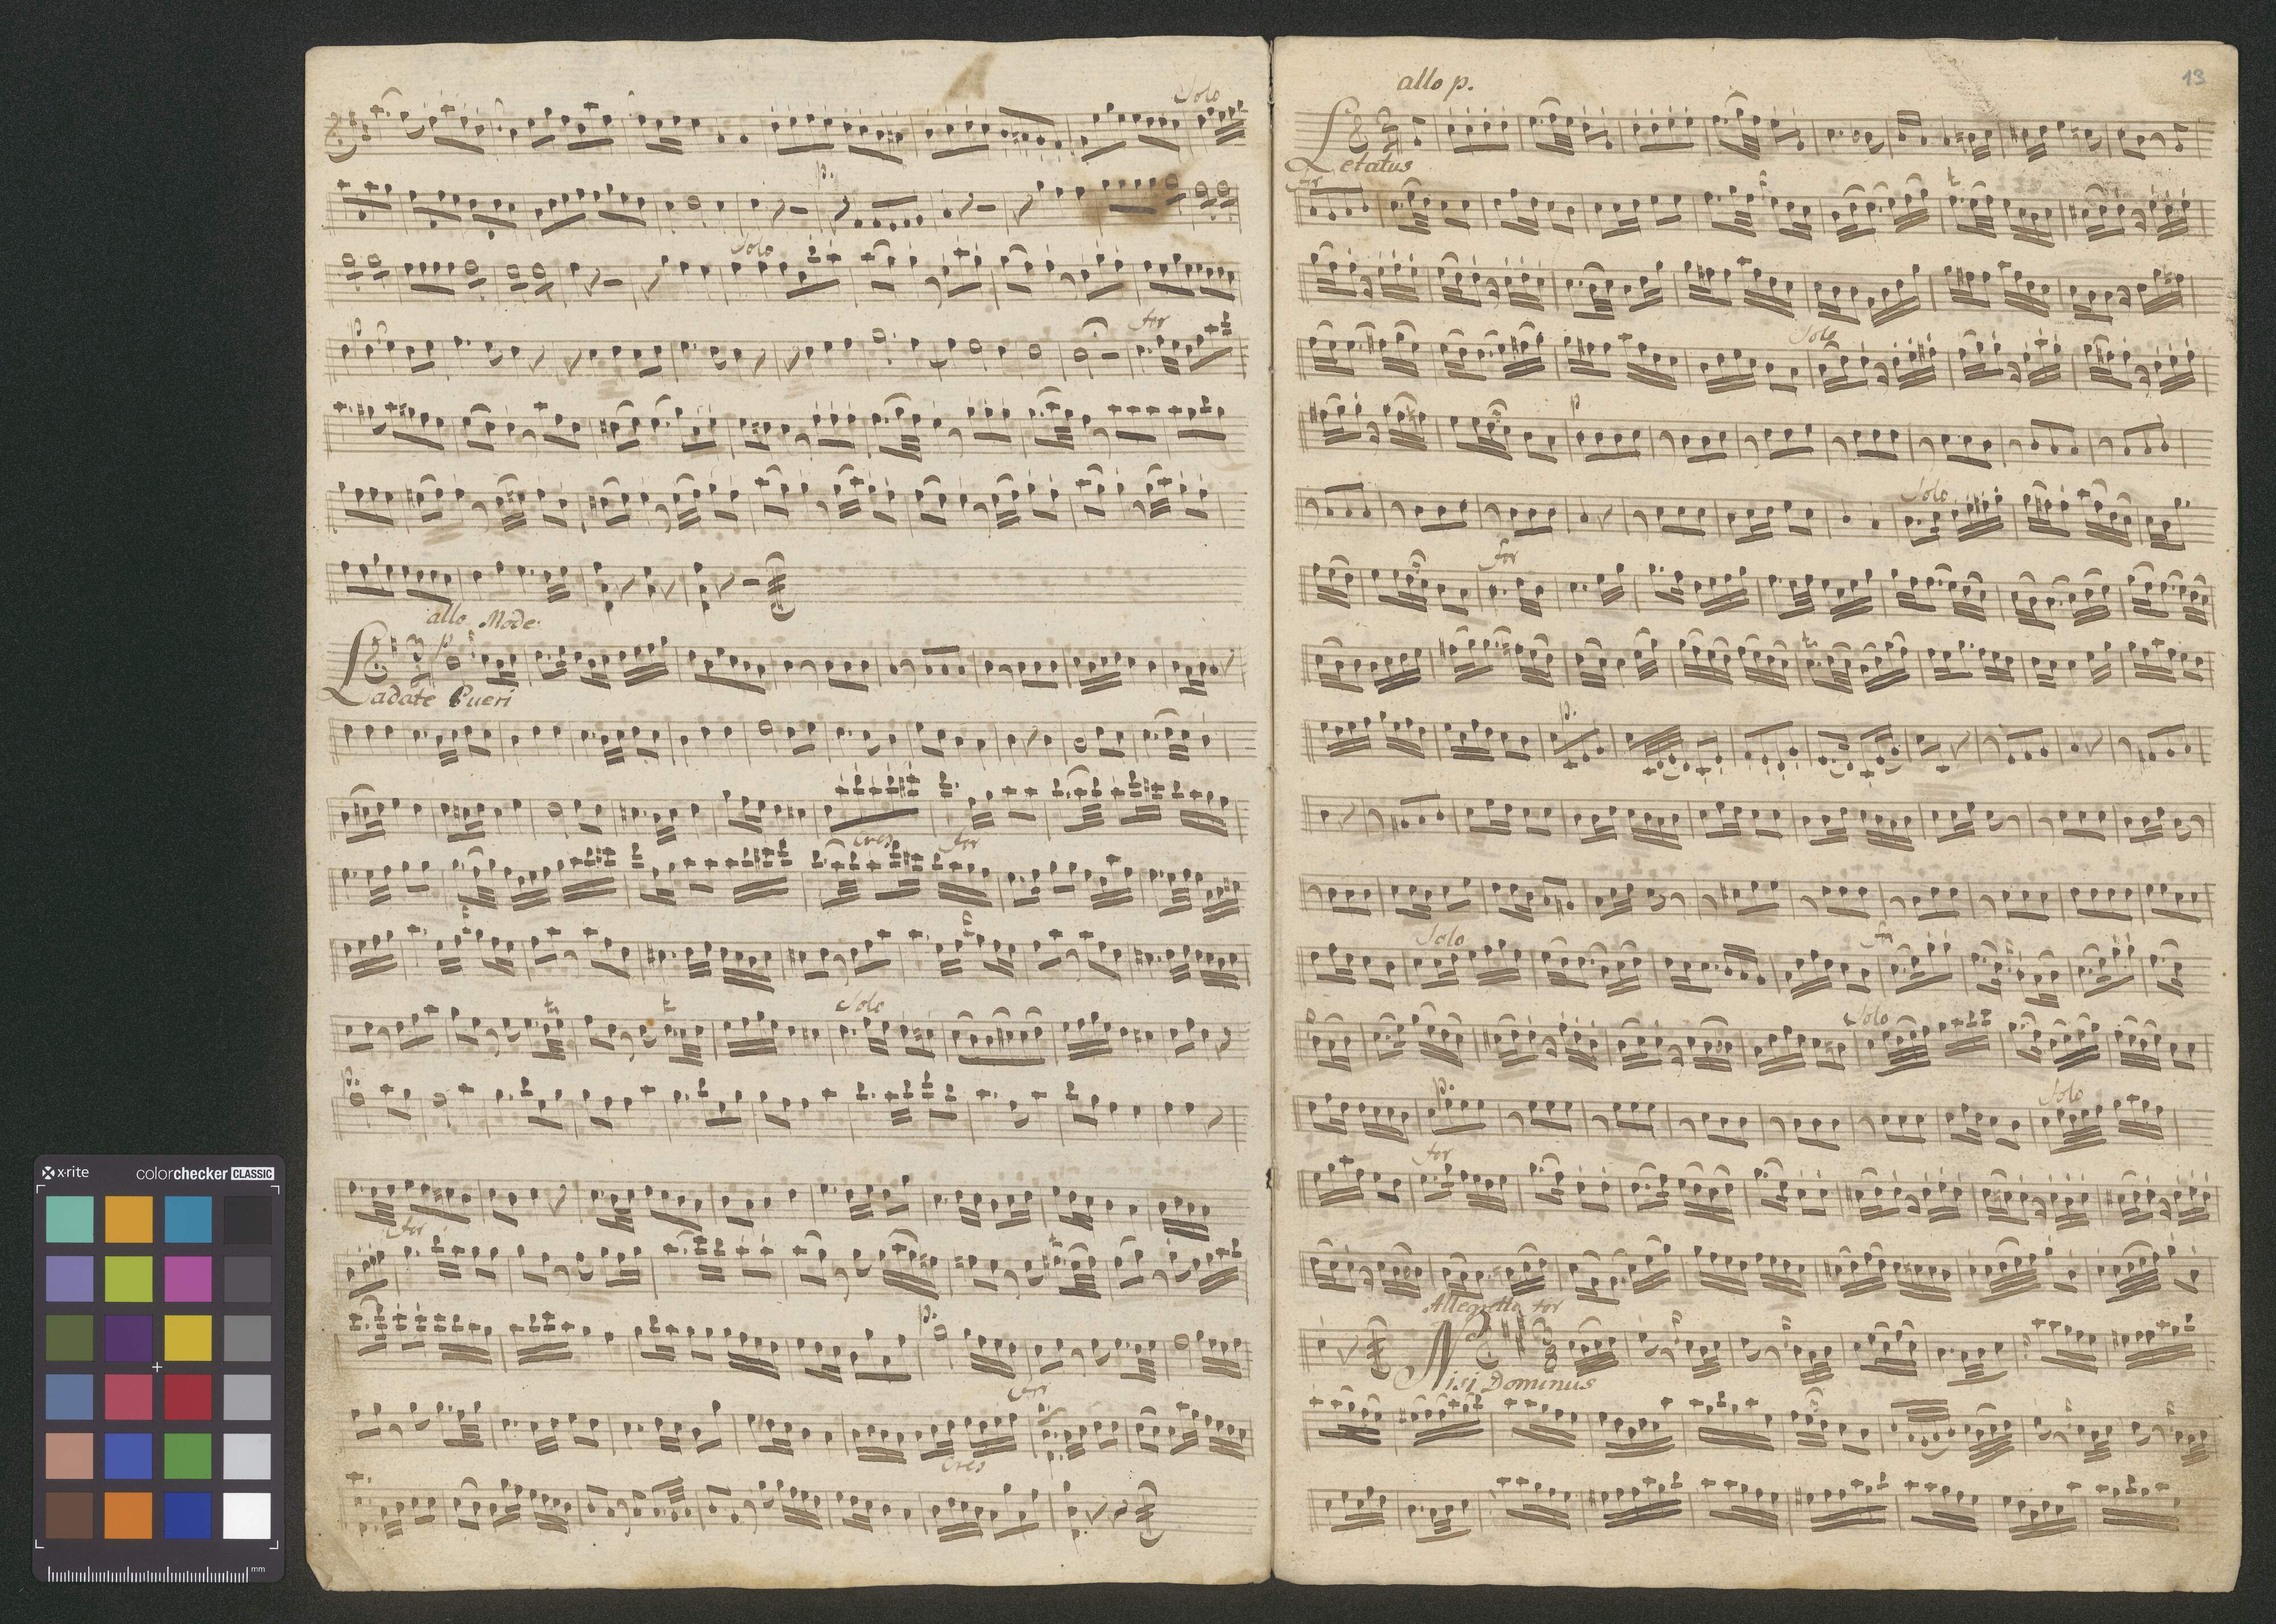 Solo
p.
Solo
p
for
allo Mode:
p
Ladate Pueri
cres
for
Solo
p.
for
p.
for
cres
13
allo p.
Letatus
for
Solo
p
Solo
for
p.
Solo
for
p
Solo
p.
Solo
for
Allegretto for
Nisi Dominus
x·rite colorchecker CLASSIC
mm